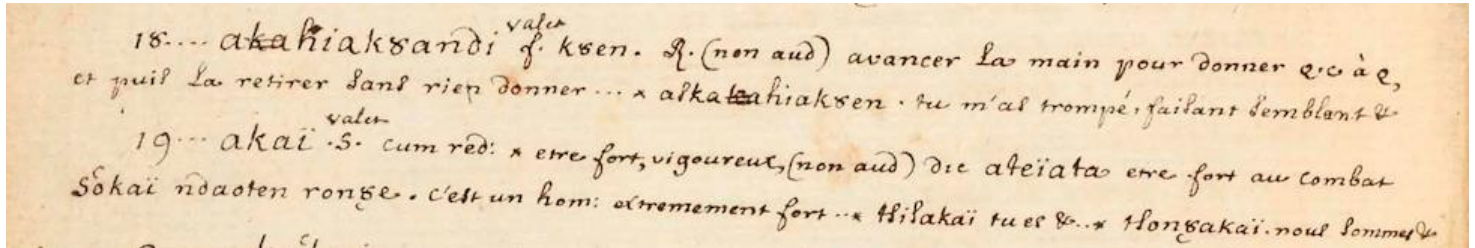 18.... akahiak8andi valet f. k8en. R. (non aud) avancer la main pour donner q.c à q,
et puis la retirer sans rien donner ... × aska hiak8en. tu m'as trompé, faisant semblant &
19... akaï valet .S. cum red: × etre fort, vigoureux, (non aud) dic ateïata etre fort au combat
Sokaï ndaoten ron8e. c'est un hom: extremement fort .. × tsisakaï tu es &.. × tson8akaï. nous sommes &